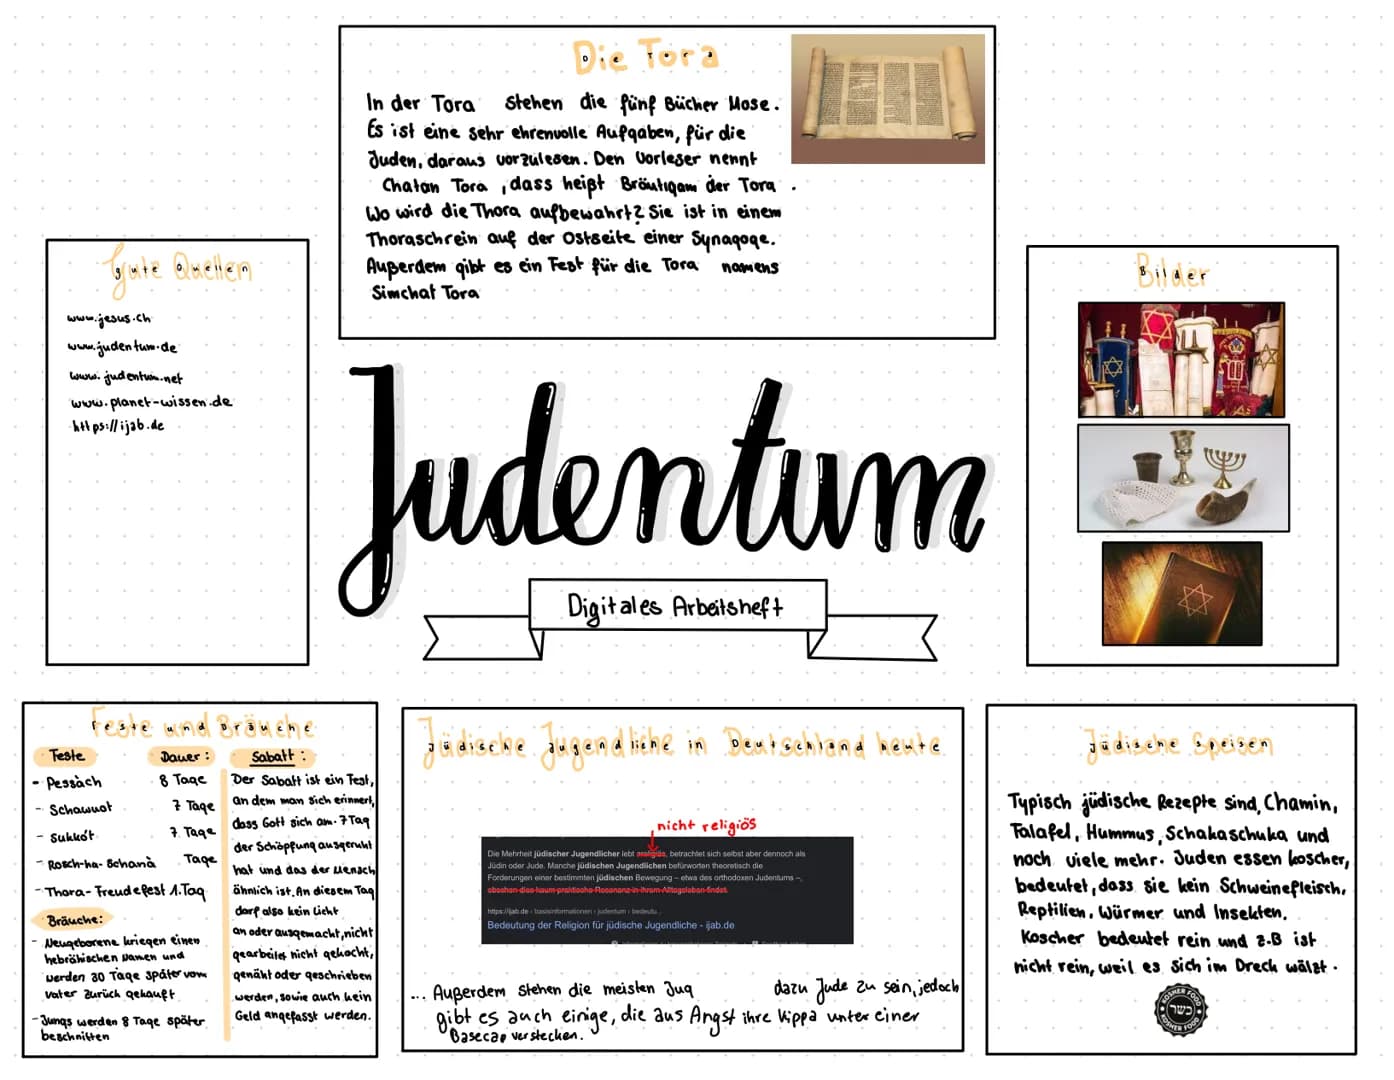 Die Tora
In der Tora stehen die fünf Bücher Mose.
Es ist eine sehr ehrenvolle Aufgaben, für die
Juden, daraus vorzulesen. Den Vorleser nennt
Chatan Tora, dass heißt Bräutigam der Tora.
Wo wird die Thora aufbewahrt? Sie ist in einem
Thoraschrein auf der Ostseite einer Synagoge.
Außerdem gibt es ein Fest für die Tora namens
Simchat Tora
Gute Quellen
www.jesus.ch
www.judentum.de
www.judentum.net
www.planet-wissen.de
https://ijab.de
Bilder
Judentum
Digitales Arbeitsheft
Feste und Bräuche
Feste Dauer:
- Pessach 8 Tage
- Schawuot 7 Tage
- Sukkot 7 Tage
- Rosch-ha-Schana Tage
- Thora-Freudefest 1.Tag
Bräuche:
- Neugeborene kriegen einen
hebräischen Namen und
werden 30 Tage später vom
Vater zurück gekauft
- Jungs werden 8 Tage später
beschnitten
Sabatt:
Der Sabatt ist ein Fest,
an dem man sich erinnert,
dass Gott sich am 7 Tag
der Schöpfung ausgeruht
hat und das der Mensch
ähnlich ist. An diesem Tag
darf also kein Licht
an oder ausgemacht, nicht
gearbeitet nicht gekocht,
genäht oder geschrieben
werden, sowie auch kein
Geld angefasst werden.
Jüdische Jugendliche in Deutschland heute
nicht religiös
Die Mehrheit jüdischer Jugendlicher lebt religiös, betrachtet sich selbst aber dennoch als
Jüdin oder Jude. Manche jüdischen Jugendlichen befürworten theoretisch die
Forderungen einer bestimmten jüdischen Bewegung – etwa des orthodoxen Judentums –,
obschon dies kaum praktische Resonanz in ihrem Alltagsleben findet.
https://ijab.de › basisinformationen › judentum › bedeutu...
Bedeutung der Religion für jüdische Jugendliche - ijab.de
... Außerdem stehen die meisten Jug dazu Jude zu sein, jedoch
gibt es auch einige, die aus Angst ihre Kippa unter einer
Basecap verstecken.
Jüdische Speisen
Typisch jüdische Rezepte sind, Chamin,
Falafel, Hummus, Schakaschuka und
noch viele mehr. Juden essen koscher,
bedeutet, dass sie kein Schweinefleisch,
Reptilien, Würmer und Insekten.
Koscher bedeutet rein und z.B ist
nicht rein, weil es sich im Dreck wälzt.
KOSHER FOOD
כשר
KOSHER FOOD